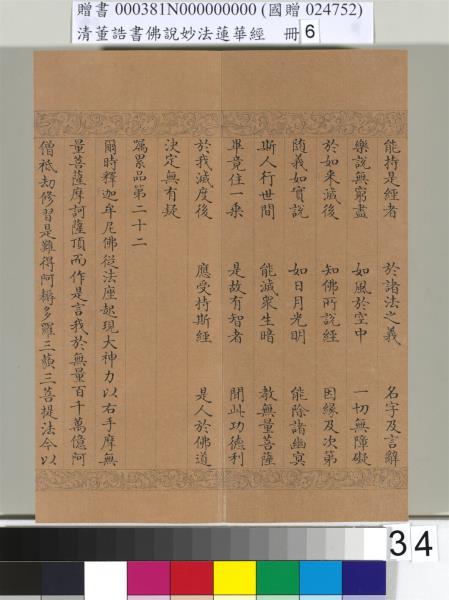 贈書 000381N000000000 (國贈 024752)
清董誥書佛說妙法蓮華經 冊 6
能持是經者 於諸法之義 名字及言辭
樂說無窮盡 如風於空中 一切無障礙
於如来滅後 知佛所說經 因縁及次第
随義如實說 如日月光明 能除諸幽冥
斯人行世間 能滅衆生暗 教無量菩薩
畢竟住一乗 是故有智者 聞此功德利
於我滅度後 應受持斯經 是人於佛道
決定無有疑
囑累品第二十二
爾時釋迦牟尼佛從法座起現大神力以右手摩無
量菩薩摩訶薩頂而作是言我於無量百千萬億阿
僧祗劫修習是難得阿耨多羅三藐三菩提法今以
34